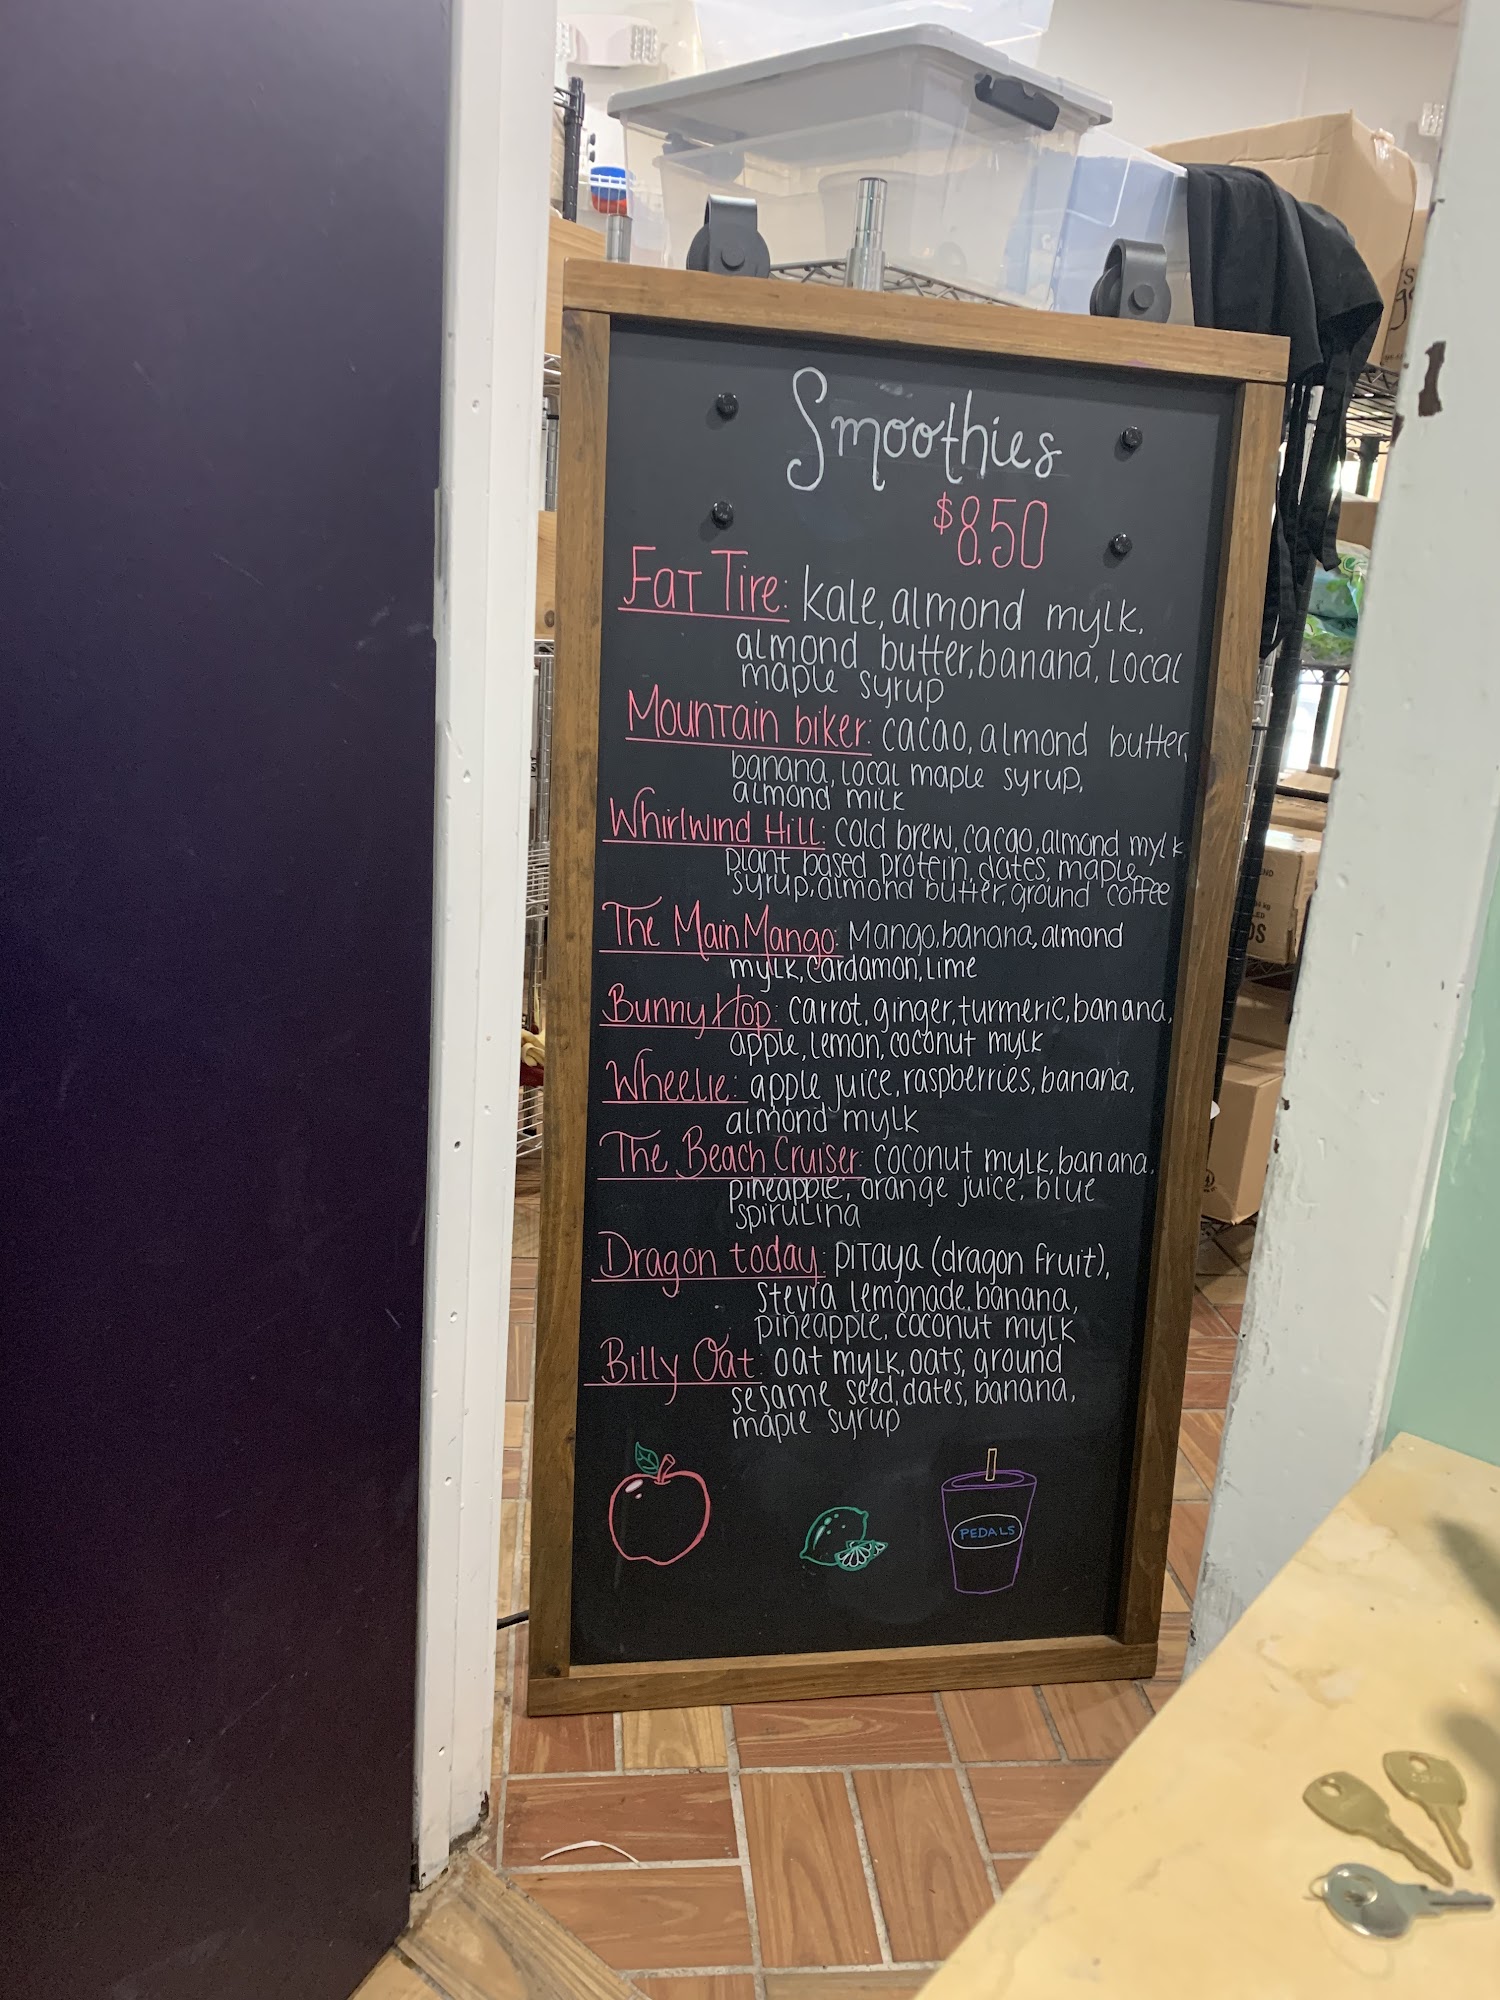 Smoothies
$8.50
Fat Tire: kale, almond mylk,
almond butter, banana, local
maple syrup
Mountain biker: cacao, almond butter,
banana, local maple syrup,
almond milk
Whirlwind Hill: cold brew, cacao, almond mylk,
plant based protein, dates, maple
syrup, almond butter, ground coffee
The Main Mango: Mango, banana, almond
mylk, cardamon, lime
Bunny Hop: carrot, ginger, turmeric, banana,
apple, lemon, coconut mylk
Wheelie: apple juice, raspberries, banana,
almond mylk
The Beach Cruiser: coconut mylk, banana,
pineapple, orange juice, blue
spirulina
Dragon today: pitaya (dragon fruit),
stevia lemonade, banana,
pineapple, coconut mylk
Billy Oat: oat mylk, oats, ground
sesame seed, dates, banana,
maple syrup
PEDALS